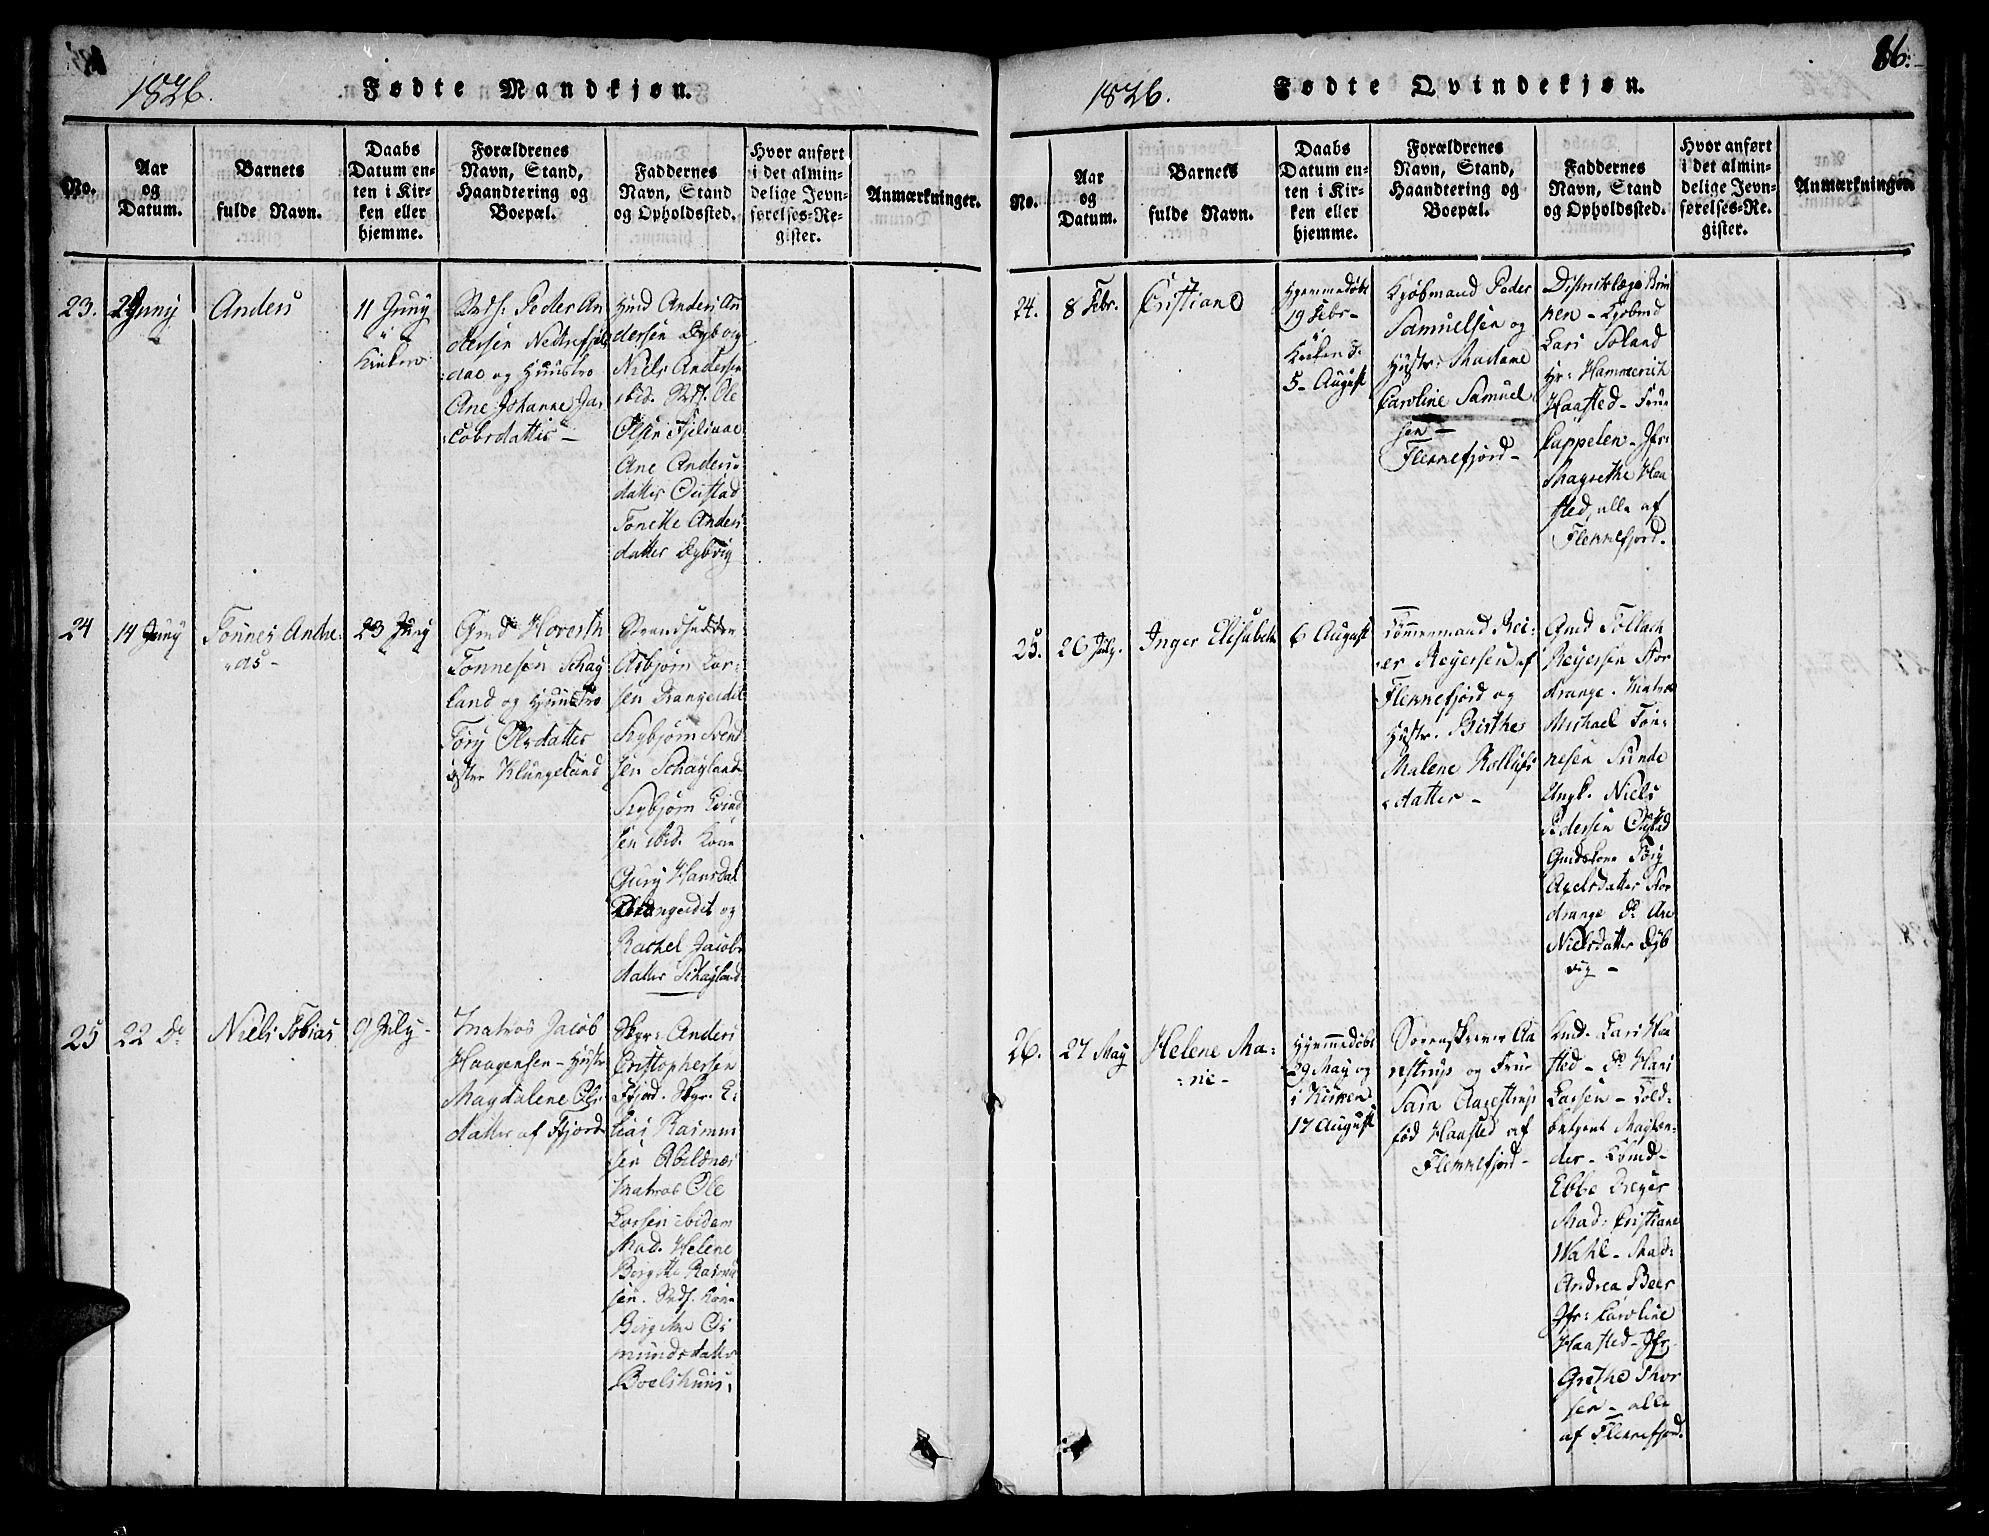 1826.
Fødte Mandkjøn.
No.
Aar
og
Datum.
Barnets
fulde Navn.
Daabs
Datum en-
ten i Kir-
ken eller
hjemme.
Forældrenes
Navn, Stand,
Haandtering og
Boepæl.
Faddernes
Navn, Stand
og Opholdssted.
Hvor anført
i det almin-
delige Jevn-
førelses-Re-
gister.
Anmærkninger.
23.
Juny
Anders
11 Juny
Kirken
Peder An
dersen
og Hustro
Ane Johanne Ja-
cobsdatter
Anders An
dersen Dybvig
Niels Andersen
ibid. Ole
Olsen
Ane Anders-
datter Oustad
Tonette Anders
datter Dybvig
24
14 Juny
Tønnes Andre-
as-
23 Juny
Gmd Hoverth
Tønnesøn Schag
land og Hustro
Tory Olsdatter
Klungeland
Strandsidder
Asbjørn Lar-
sen Drangeidet
Sigbjørn Svend
sen Schagland
Sigbjørn Evind
sen ibid. Kone
Gury Hansdat
Drangeidet og
Rachel Jacobs
datter Schagland
25
22 do
Niels Tobias
9 July-
Matros Jacob
Haagensen - Hustr
Magdalene Ols
datter af Fjord
Skpr: Anders
Cristophersen
Fjord. Skpr. E-
lias Rasmus
sen Abelsnes
Matros Ole
Larsen ibidem
Mad. Helene
Birgitte Rasmus
sen. Kone
Birgitte Os
mundsdatter
Boelshuus.
86.
1826.
Fødte Qvindekjøn.
No.
Aar
og
Datum.
Barnets
fulde Navn.
Daabs
Datum en-
ten i Kir-
ken eller
hjemme.
Forældrenes
Navn, Stand,
Haandtering og
Boepæl.
Faddernes
Navn, Stand
og Opholdssted.
Hvor anført
i det almin-
delige Jevn-
førelses-Re-
gister.
Anmærkninger.
24.
8 Febr.
Cristiane
Hjemmedøbt
19 Febr-
Kirken d.
5- August
Kjøbmand Peder
Samuelsen og
Hustr: Madame
Caroline Samuel
sen -
Flekkefjord-
Distriktlæge
Kjøbmd
Lars Soland
Hr: Hammerich
Haasted - Frue
Cappelen - Jfr:
Magrethe Haa
sted, alle af
Flekkefjord.
25.
26 July.
Inger Elisabeth
6 August
Tømmermand Rei-
er Reyersen af
Flekkefjord og
Hustr. Birthe
Malene Rollufs
datter -
Gmd Tollach
Reyersen Stor
drange. Matros
Michael Tøn-
nesen Sunde
Ungk. Niels
Pedersen Oustad
Gmds Kone Tory
Axelsdatter Stor
drange do Ane
Nielsdatter Dyb
vig -
26.
27 May
Helene Ma-
rie-
Hjemmedøbt
29 May og
i Kirken
17 August
Sorenskriver Aa
restrup og Frue
Sara Aarestrup
fød Haasted af
Flekkefjord-
Kmd. Lars Haa
sted - do Hans
Lassen - Told-
betjent Maylæn-
der - Kbmd-
Ebbe Dreyer
Mad: Cristiane
Wahl - Mad:
Andrea Beer
Jfr: Caroline
Haasted - Jfr
Grethe Thor
sen - alle
af Flekkefjord.